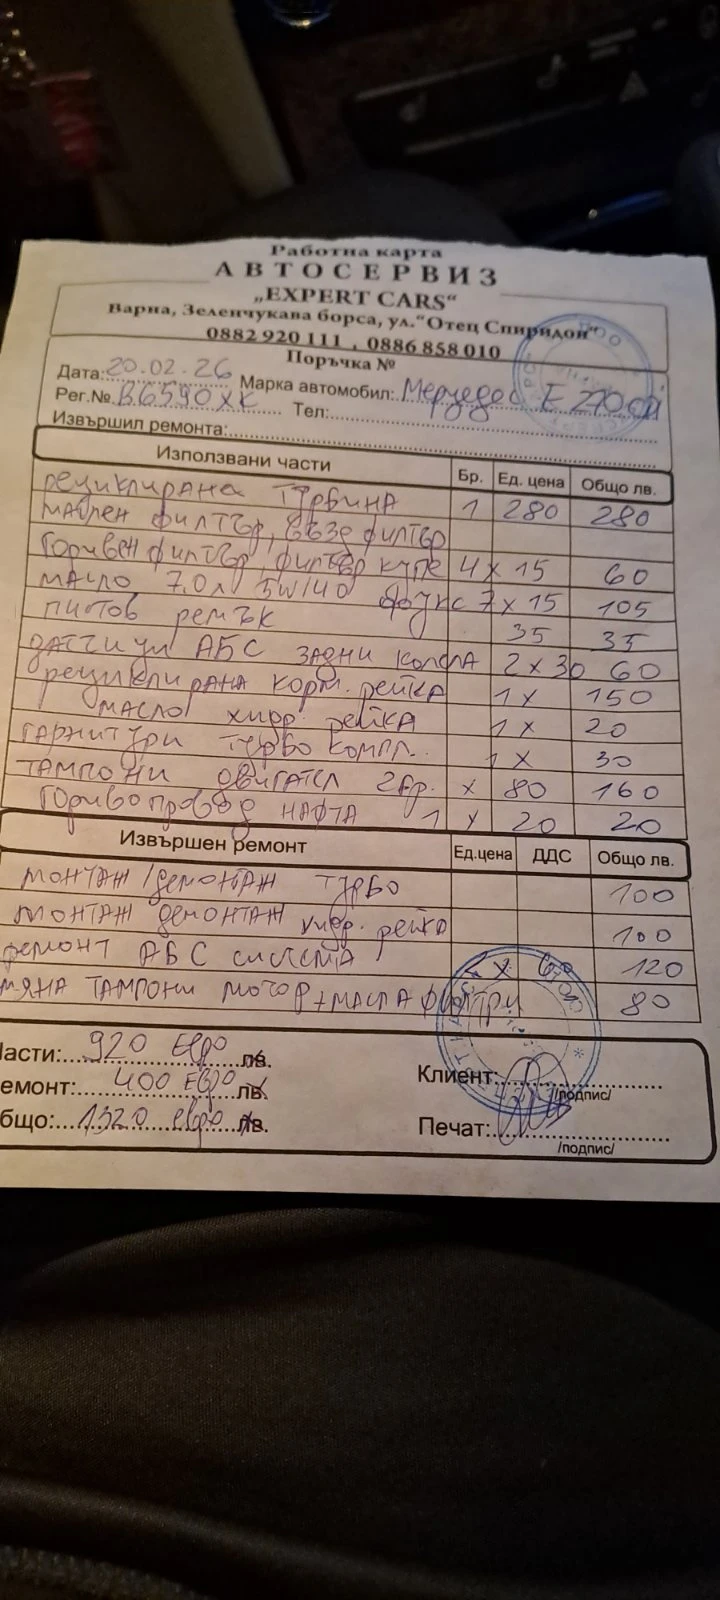 Работна карта
АВТОСЕРВИЗ
„EXPERT CARS“
Варна, Зеленчукава борса, ул.“Отец Спиридон“
0882 920 111 , 0886 858 010
Поръчка №
Дата: 20.02.26 Марка автомобил: Мерцедес E 270 CDI
Рег.№ В6590ХК Тел:
Извършил ремонта:
Използвани части Бр. Ед. цена Общо лв.
рециклирана турбина 1 280 280
маслен филтър, възд филтър
горивен филтър, филтър купе 4 x 15 60
масло 7.0л 5w/40 фукс 7 x 15 105
пистов ремък 35 35
датчици АБС задни колела 2 x 30 60
рециклирана корм. рейка 1 x 150
масло хидр. рейка 1 x 20
гарнитури турбо компл. 1 x 30
тампони двигател 2бр. x 80 160
горивопровод нафта 1 x 20 20
Извършен ремонт Ед.цена ДДС Общо лв.
монтаж/демонтаж турбо 100
монтаж демонтаж хидр. рейка 100
ремонт АБС система 2 x 60 120
мяна тампони мотор + масла филтри 80
Части: 920 Евро лв.
емонт: 400 Евро лв. Клиент: /подпис/
бщо: 1320 евро лв. Печат: /подпис/